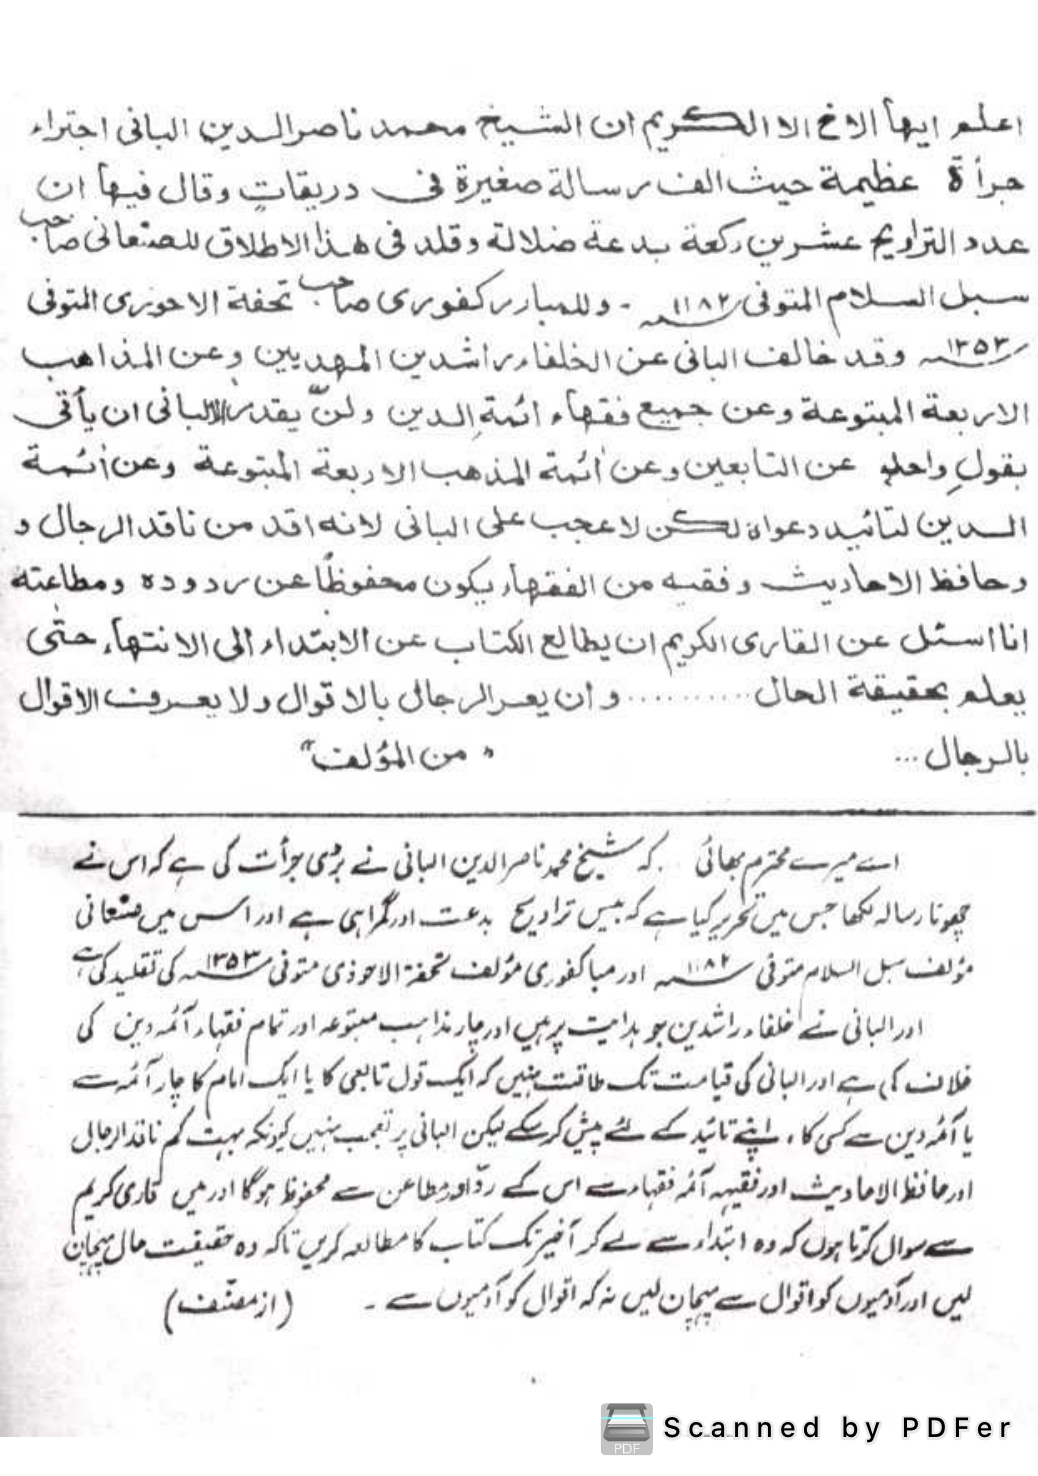 اعلم ايهاً الاخ الا الكريم ان الشيخ محمد ناصر الدين البانى اجتراء
جرأة عظيمة حيث الف رسالة صغيرة فى دريقاتٍ وقال فيها ان
عدد التراويح عشرين ركعة بدعة ضلالة وقلد فى هذا الاطلاق للصنعانى صاحب
سبل السلام المتوفى ١١٨٢ - وللمباركفورى صاحب تحفة الاحوزى المتوفى
١٣٥٣ وقد خالف البانى عن الخلفاء راشدين المهديين وعن المذاهب
الاربعة المبتوعة وعن جميع فقهاء ائمة الدين ولنّ يقدر الالبانى ان يأتى
بقولٍ واحدٍ عن التابعين وعن أئمة المذهب الاربعة المبتوعة وعن أئمة
الدين لتائيد دعواه لكن لا عجب على البانى لانه اقد من ناقد الرجال و
وحافظ الاحاديث وفقيه من الفقهاء يكون محفوظًا عن ردوده ومطاعته
انا اسئل عن القارى الكريم ان يطالع الكتاب عن الابتداء الى الانتهاء حتى
يعلم بحقيقة الحال ........... و ان يعر الرجال بالاقوال ولا يعرف الاقوال
بالرجال ... " من المؤلف "
اے میرے محترم بھائی .. کہ شیخ محمد ناصر الدین البانی نے بڑی جرأت کی ہے کہ اس نے
چھوٹا رسالہ لکھا جس میں تحریر کیا ہے کہ بیس تراویح بدعت اور گمراہی ہے اور اس میں صنعانی
مؤلف سبل السلام متوفی ١١٨٢ اور مباکفوری مؤلف تحفۃ الاحوذی متوفی ١٣٥٣ کی تقلید کی ہے
اور البانی نے خلفاء راشدین جو ہدایت پر ہیں اور چار مذاہب مبتوعہ اور تمام فقہاء آئمہ دین کی
خلاف کی ہے اور البانی کی قیامت تک طاقت نہیں کہ ایک قول تابعی کا یا ایک امام کا چار آئمہ سے
یا آئمہ دین سے کسی کا، اپنے تائید کے لئے پیش کر سکے لیکن البانی پر تعجب نہیں کیونکہ بہت کم ناقد الرجال
اور حافظ الاحادیث اور فقیہہ آئمہ فقہاء سے اس کے ردّ اور مطاعن سے محفوظ ہوگا اور میں قاری کریم
سے سوال کرتا ہوں کہ وہ ابتداء سے لے کر آخیر تک کتاب کا مطالعہ کریں تاکہ وہ حقیقت حال پہچان
لیں اور آدمیوں کو اقوال سے پہچان لیں نہ کہ اقوال کو آدمیوں سے ۔ (از مصنّف)
PDF Scanned by PDFer